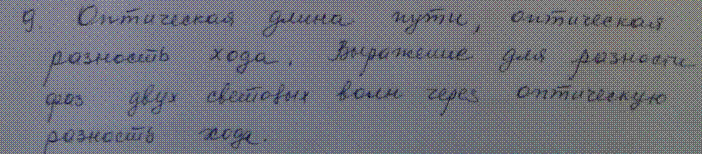 9. Оптическая длина пути, оптическая
разность хода. Выражение для разности
фаз двух световых волн через оптическую
разность хода.